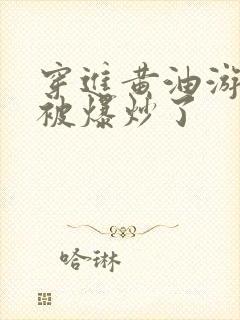 穿进黄油游
被爆炒了
哈琳